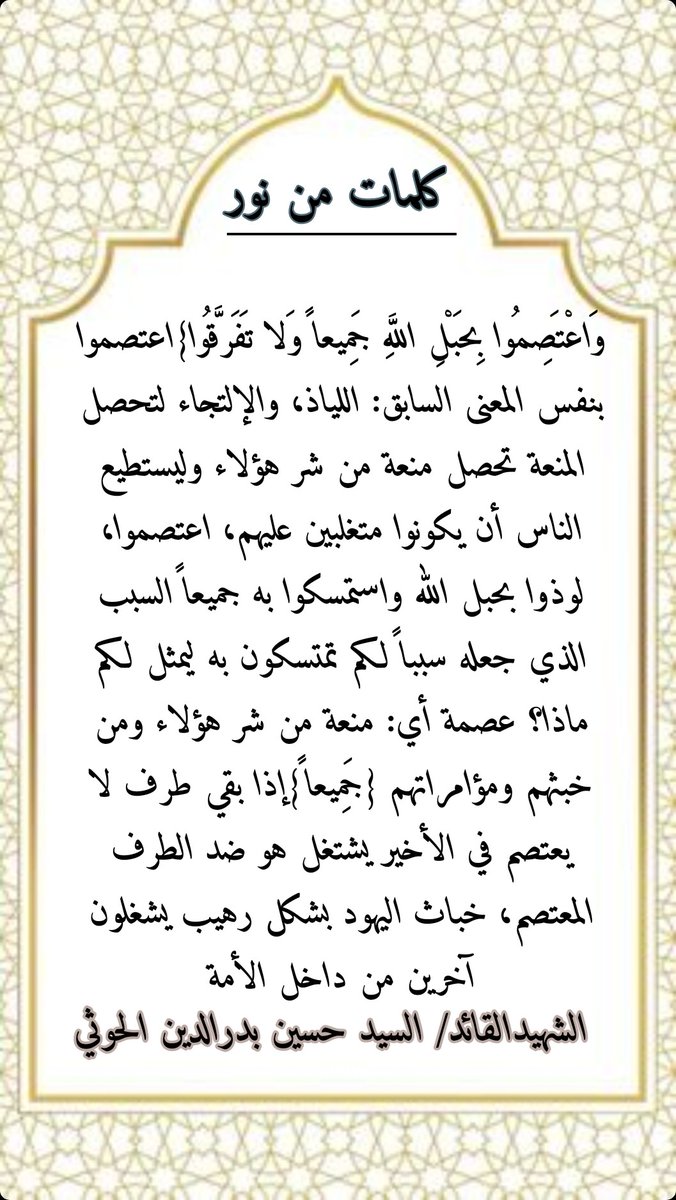 كلمات من نور
وَاعْتَصِمُوا بِحَبْلِ اللَّهِ جَمِيعاً وَلا تَفَرَّقُوا}اعتصموا
بنفس المعنى السابق: اللياذ، والإلتجاء لتحصل
المنعة تحصل منعة من شر هؤلاء وليستطيع
الناس أن يكونوا متغلبين عليهم، اعتصموا،
لوذوا بحبل الله واستمسكوا به جميعاً السبب
الذي جعله سبباً لكم تمتسكون به ليمثل لكم
ماذا؟ عصمة أي: منعة من شر هؤلاء ومن
خبثهم ومؤامراتهم {جَمِيعاً}إذا بقي طرف لا
يعتصم في الأخير يشتغل هو ضد الطرف
المعتصم، خباث اليهود بشكل رهيب يشغلون
آخرين من داخل الأمة
الشهيدالقائد/ السيد حسين بدرالدين الحوثي